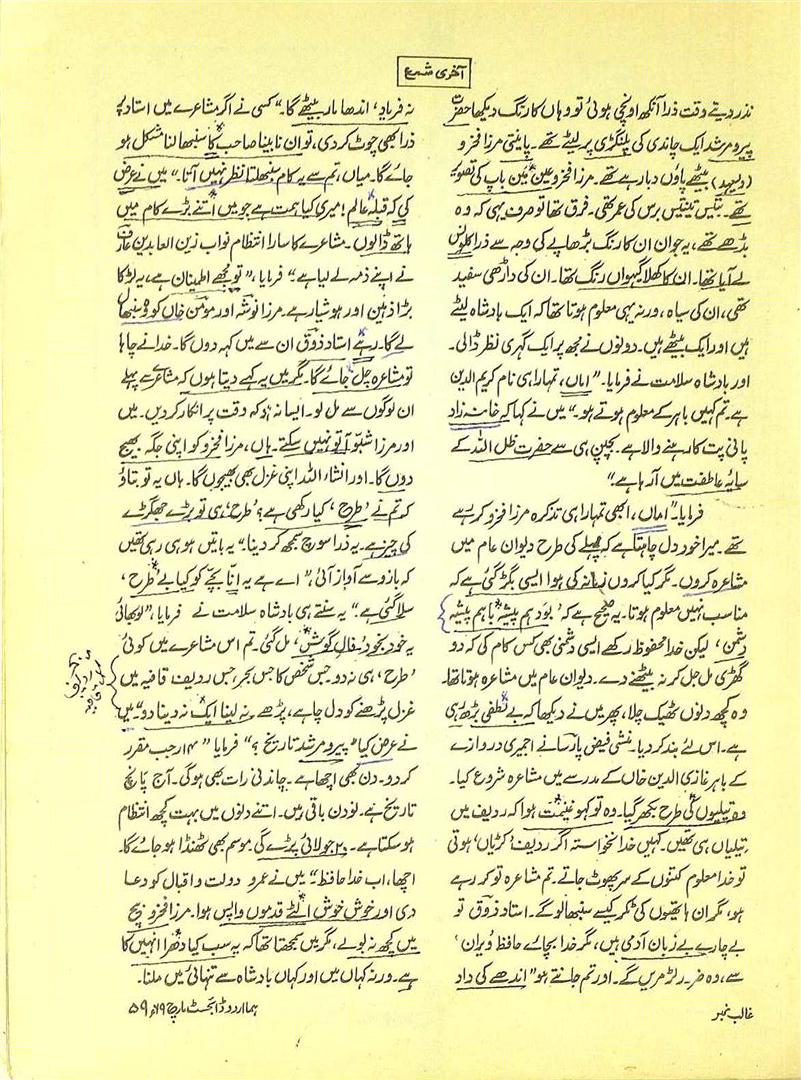 آخری شمع
نذر دیتے وقت ذرا آنکھ اونچی ہوئی تو وہاں کا رنگ دیکھا حضرت
پیر و مرشد ایک چاندی کی پلنگڑی پر لیٹے تھے۔ پائنتی مرزا فخرو
(ولیعہد) بیٹھے پاؤں دبا رہے تھے۔ مرزا فخرو عین مین باپ کی تصویر
تھے۔ بتیس تینتیس برس کی عمر تھی۔ فرق تھا تو صرف یہی کہ وہ
بڈھے تھے، یہ جوان ان کا رنگ بڑھاپے کی وجہ سے ذرا کلونس
لے آیا تھا۔ ان کا کھلا گیہواں رنگ تھا۔ ان کی داڑھی سفید
تھی، ان کی سیاہ، ورنہ یہی معلوم ہوتا تھا کہ ایک بادشاہ لیٹے
ہیں اور ایک بیٹھے ہیں۔ دونوں نے مجھ پر ایک گہری نظر ڈالی۔
اور بادشاہ سلامت نے فرمایا۔ "اماں، تمہارا ہی نام کریم الدین
ہے۔ تم کہیں باہر کے معلوم ہوتے ہو۔" میں نے کہا کہ خانہ زاد
پانی پت کا رہنے والا ہے۔ بچپن ہی سے حضرت ظل اللہ کے
سایۂ عاطفت میں آ رہا ہے"
فرمایا۔ "اماں، ابھی تمہارا ہی تذکرہ مرزا فخرو کر رہے
تھے۔ میرا خود دل چاہتا ہے کہ پہلے کی طرح دیوان عام میں
مشاعرہ کروں۔ مگر کیا کروں زمانہ کی ہوا ایسی بگڑ گئی ہے کہ
مناسب نہیں معلوم ہوتا۔ یہ صحیح ہے کہ 'بود ہم پیشہ با ہم پیشہ
دشمن، لیکن خدا محفوظ رکھے ایسی دشمنی بھی کس کام کی کہ دو
گھڑی مل جل کر نہ بیٹھنے دے۔ دیوان عام میں مشاعرہ ہوتا تھا۔
وہ کچھ دنوں ٹھیک چلا، پھر میں نے دیکھا کہ بے لطفی بڑھ رہی
ہے۔ اس لئے بند کر دیا۔ منشی فیض پارسا نے اجمیری دروازے
کے باہر غازی الدین خاں کے مدرسے میں مشاعرہ شروع کیا۔
وہ تیلیوں کی طرح بکھر گیا۔ وہ تو کہو غنیمت ہوا کہ ردیف میں
تیلیاں ہی تھیں۔ کہیں خدانخواستہ اگر ردیف 'کڑیاں' ہوتی
تو خدا معلوم کتنوں کے سر پھوٹ جاتے۔ تم مشاعرہ تو کر رہے
ہو، مگر ان ہاتھیوں کی ٹکر کیسے سنبھالو گے۔ استاد ذوق تو
بے چارے بے زبان آدمی ہیں، مگر خدا بچائے حافظ ویران
سے، وہ ضرور لڑ مریں گے۔ اور تم جانتے ہو "اندھے کی داد
نہ فریاد، اندھا مار بیٹھے گا۔" کسی نے اگر مشاعرے میں استاد پر
ذرا بھی چوٹ کر دی، تو ان نابینا صاحب کا سنبھالنا مشکل ہو
جائے گا۔ میاں، تم سے یہ کام سنبھلتا نظر نہیں آتا۔" میں نے عرض
کی کہ قبلۂ عالم! میری کیا ہمت ہے جو میں اتنے بڑے کام میں
ہاتھ ڈالوں۔ مشاعرے کا سارا انتظام نواب زین العابدین عارف
نے اپنے ذمہ لے لیا ہے۔" فرمایا، "تو مجھے اطمینان ہے، یہ لڑکا
بڑا ذہین اور ہوشیار ہے۔ مرزا نوشہ اور مومن خاں کو وہ سنبھال
لے گا۔ رہے استاد ذوق ان سے میں کہہ دوں گا۔ خدا نے چاہا
تو مشاعرہ چل جائے گا۔ مگر میں یہ کہے دیتا ہوں کہ مشاعرے سے پہلے
ان لوگوں سے مل لو۔ ایسا نہ ہو کہ وقت پر انکار کر دیں۔ میں
اور مرزا شبو آ تو نہیں سکتے۔ ہاں، مرزا فخرو کو اپنی جگہ بھیج
دوں گا۔ اور انشاء اللہ اپنی غزل بھی بھیجوں گا۔ ہاں یہ تو بتاؤ
کہ تم نے 'طرح' کیا رکھی ہے؟ 'طرح' ہی تو بڑے جھگڑے
کی چیز ہے۔ یہ ذرا سوچ سمجھ کر دینا۔" یہ باتیں ہو ہی رہی تھیں
کہ بازو سے آواز آئی، "اے ہے یہ انّا بچے کو کیا بے طرح،
سلا گئی ہے" یہ سنتے ہی بادشاہ سلامت نے فرمایا، "لو بھائی
یہ خود بخود فال گوش، مل گئی۔ تم اس مشاعرے میں کوئی
'طرح'، ہی نہ دو۔ جس شخص کا جس بحر، جس ردیف قافیہ میں
غزل پڑھنے کو دل چاہے، پڑھے۔ نہ لینا ایک نہ دینا دو" میں
نے عرض کیا "پیر و مرشد تاریخ؟" فرمایا "۱۴ رجب مقرر
کر دو۔ دن بھی اچھا ہے۔ چاندنی رات بھی ہوگی۔ آج پانچ
تاریخ ہے۔ نو دن باقی ہیں۔ اتنے دنوں میں بہت کچھ انتظام
ہو سکتا ہے۔ ۲۰ جولائی پڑے گی موسم بھی ٹھنڈا ہو جائے گا۔
اچھا، اب خدا حافظ" میں نے عمرو دولت و اقبال کو دعا
دی اور خوش خوش الٹے قدموں واپس ہوا۔ مرزا فخرو بیچ
میں کچھ نہ بولے، مگر میں سمجھتا تھا کہ یہ سب کیا دھرا انہیں کا
ہے۔ ورنہ کہاں میں اور کہاں بادشاہ سے تنہائی میں ملنا۔
غالب نمبر
ہما اردو ڈائجسٹ مارچ ۶۹ء ۵۹